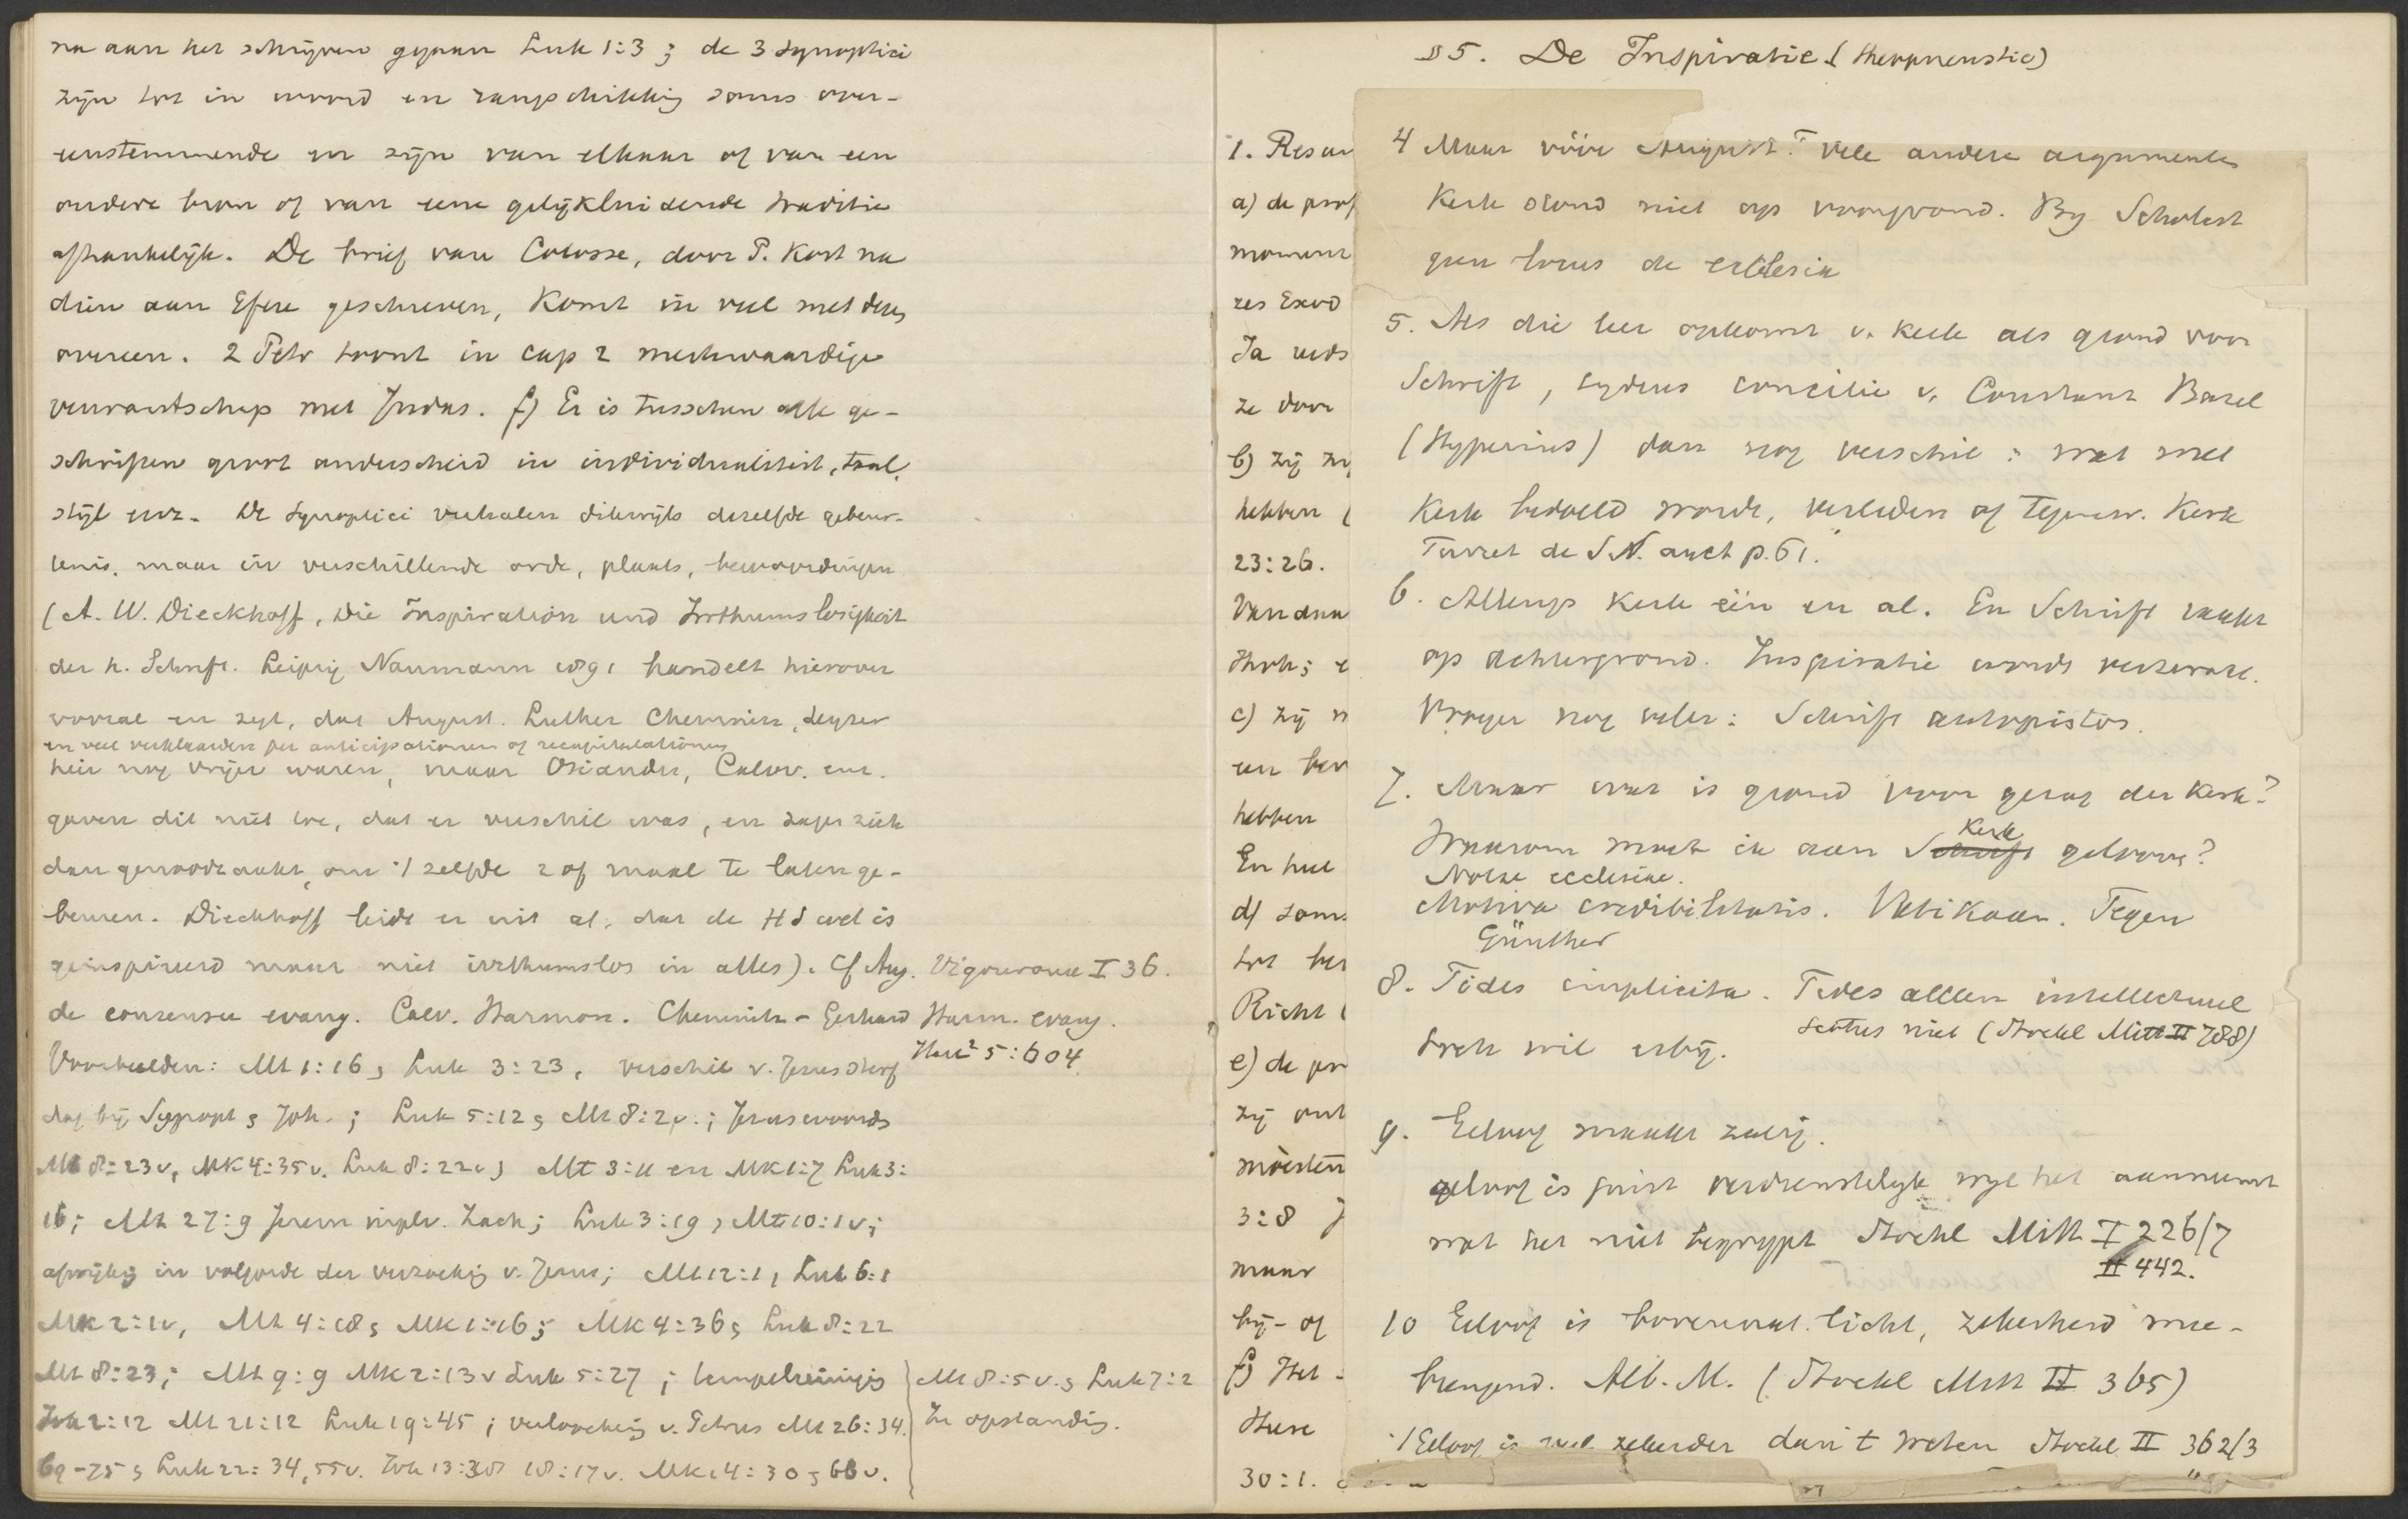 na aan het schrijven gegaan Luk 1:3; de 3 Synoptici
zijn tot in woord en rangschikking soms over-
eenstemmende en zijn van elkaar of van een
andere bron of van eene gelijkluidende traditie
afhankelijk. De brief van Colosse, door P. kort na
dien aan Efeze geschreven, komt in veel met deze
overeen. 2 Petr toont in cap 2 merkwaardige
verwantschap met Judas. f) Er is tusschen alle ge-
schriften groot onderscheid in individualiteit, taal,
stijl enz. De Synoptici verhalen dikwijls dezelfde gebeur-
tenis, maar in verschillende orde, plaats, bewoordingen
(A. W. Dieckhoff, Die Inspiration und Irrthumslosigkeit
der h. Schrift. Leipzig Naumann 1891 handelt hierover
vooral en zegt, dat August. Luther Chemnitz, Leyser
en veel verklaarden per anticipationem of recapitulationem
hier nog vrijer waren, maar Osiander, Calov. enz.
gaven dit niet toe, dat er verschil was, en zagen zich
dan genoodzaakt, om 't zelfde 2 of maal te laten ge-
beuren. Dieckhoff leidt er uit af, dat de HS wel is
geinspireerd maar niet irrthumslos in alles). Cf Aug.
de consensu evang. Calv. Harmon. Chemnitz - Gerhard Harm. evang.
Vigouroux I 36.
Herz² 5:604
Voorbeelden: Mt 1:16, Luk 3:23, verschil v. Jezus sterf
dag bij Synopt & Joh.; Luk 5:12, Mt 8:2v.; Jezus woords
Mt 8:23v, Mk 4:35v. Luk 8:22v; Mt 3:11 en Mk 1:7 Luk 3:
16; Mt 27:9 Jerem in plv. Zach; Luk 3:19, Mt 10:1v;
afwijking in volgorde der verzoeking v. Jezus; Mt 12:1, Luk 6:1
Mk 2:1v, Mt 4:18, Mk 1:16; Mk 4:36, Luk 8:22
Mt 8:23; Mt 9:9 Mk 2:13v Luk 5:27; tempelreiniging
Joh 2:12 Mt 21:12 Luk 19:45; verloochening v. Petrus Mt 26:34.
69-75, Luk 22:34, 55v. Joh 13:38 18:17v. Mk 14:30, 66v.
Mt 8:5v., Luk 7:2
Zr opstanding.
§5. De Inspiratie (theopneustie)
a) de prof
moment
zes Exod
Ja reds
ze door
b) zij
hebben
23:26.
Van daar
c) zij
een
hebben
En
d) soms
tot
Richt
e) de
zij
moesten
3:8
maar
bij- of
f) Het
30:1.
4 Maar vóór August. vele andere argumenten
Kerk stond niet op voorgrond. By Scholast
geen locus de ecclesia
5. Als die leer opkomt v. kerk als grond voor
Schrift, tydens concilie v. Constanz Bazel
(Hyperius) dan nog verschil: wat met
Kerk bedoeld wordt, verleden of tegenw. Kerk
Turret de S.S. auct p. 61.
6. Allengs kerk één en al. En Schrift raakt
op achtergrond. Inspiratie wordt verzwakt.
Vroeger nog velen: Schrift autopistos.
7. Maar wat is grond voor gezag der kerk?
Waarom moet ik aan Schrift Kerk gelooven?
Notae ecclesiae.
Motiva credibilitatis. Vatikaan. Tegen
Günther
8. Fides implicita. Fides alleen intellectueel
Scotus niet (Stockl Mitt II 788)
toch wil erbij.
9. Geloof maakt zalig.
geloof is juist verdienstelijk wyl het aanneemt
wat het niet begrypt Stockl Mitt I 226/7
II 442.
10 Geloof is bovennat. licht, zekerheid mee-
brengend. Alb. M. (Stockl Mitt II 365)
't Geloof is zekerder dan 't weten Stockl II 362/3